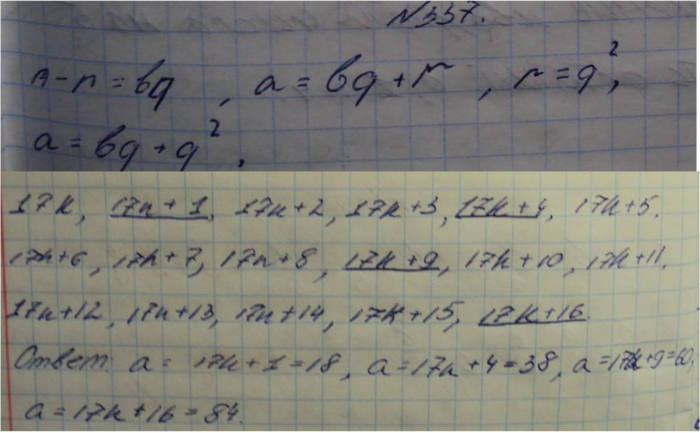 №337.
a-r=bq, a=bq+r, r=q²,
a=bq+q².
17k, 17k+1, 17k+2, 17k+3, 17k+4, 17k+5.
17k+6, 17k+7, 17k+8, 17k+9, 17k+10, 17k+11.
17k+12, 17k+13, 17k+14, 17k+15, 17k+16.
Ответ: a=17k+1=18, a=17k+4=38, a=17k+9=60,
a=17k+16=84.